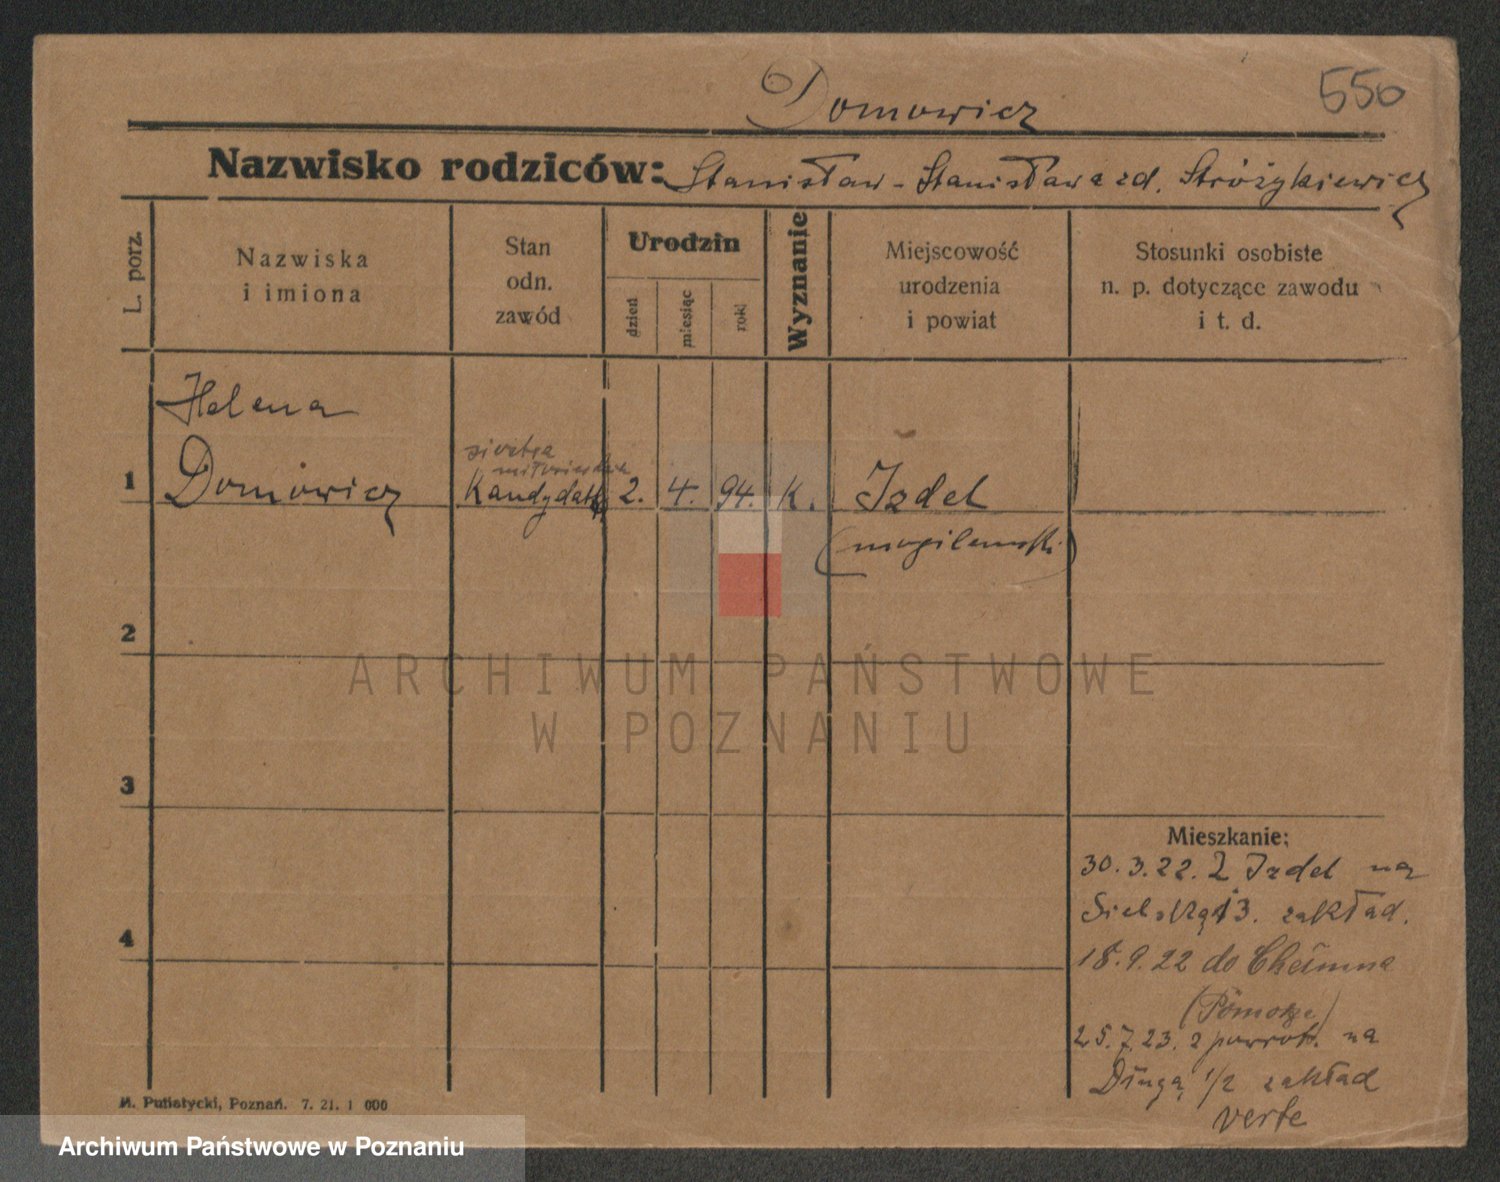 550
Domowicz
Nazwisko rodziców: Stanisław - Stanisława zd. Stróżykiewicz
L. porz.
Nazwiska
i imiona
Stan
odn.
zawód
Urodzin
dzień
miesiąc
rok
Wyznanie
Miejscowość
urodzenia
i powiat
Stosunki osobiste
n. p. dotyczące zawodu
i t. d.
Helena
siostra
miłosierdzia
1 Domowicz Kandydatk 2. 4. 94. K. Izdel
(mogilewski)
2
3
4
Mieszkanie:
30.3.22. Z Izdel na
13. zakład.
18.9.22 do Chełmna
(Pomorze)
25.7.23. z powrot. na
Długą 1/2 zakład
verte
M. Putiatycki, Poznań. 7. 21. 1 000
ARCHIWUM PAŃSTWOWE
W POZNANIU
Archiwum Państwowe w Poznaniu